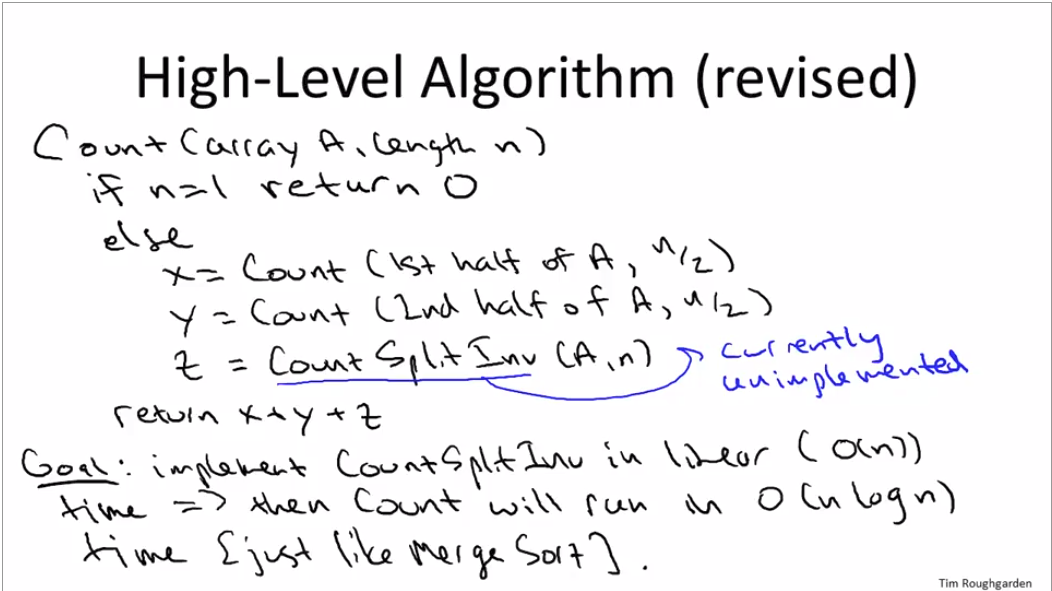 High-Level Algorithm (revised)
Count (array A, length n)
if n=1 return 0
else
x = Count (1st half of A, n/2)
y = Count (2nd half of A, n/2)
z = CountSplitInv (A,n)
currently
unimplemented
return x+y+z
Goal: implement CountSplitInv in linear (O(n))
time => then Count will run in O(n log n)
time [just like Merge Sort].
Tim Roughgarden